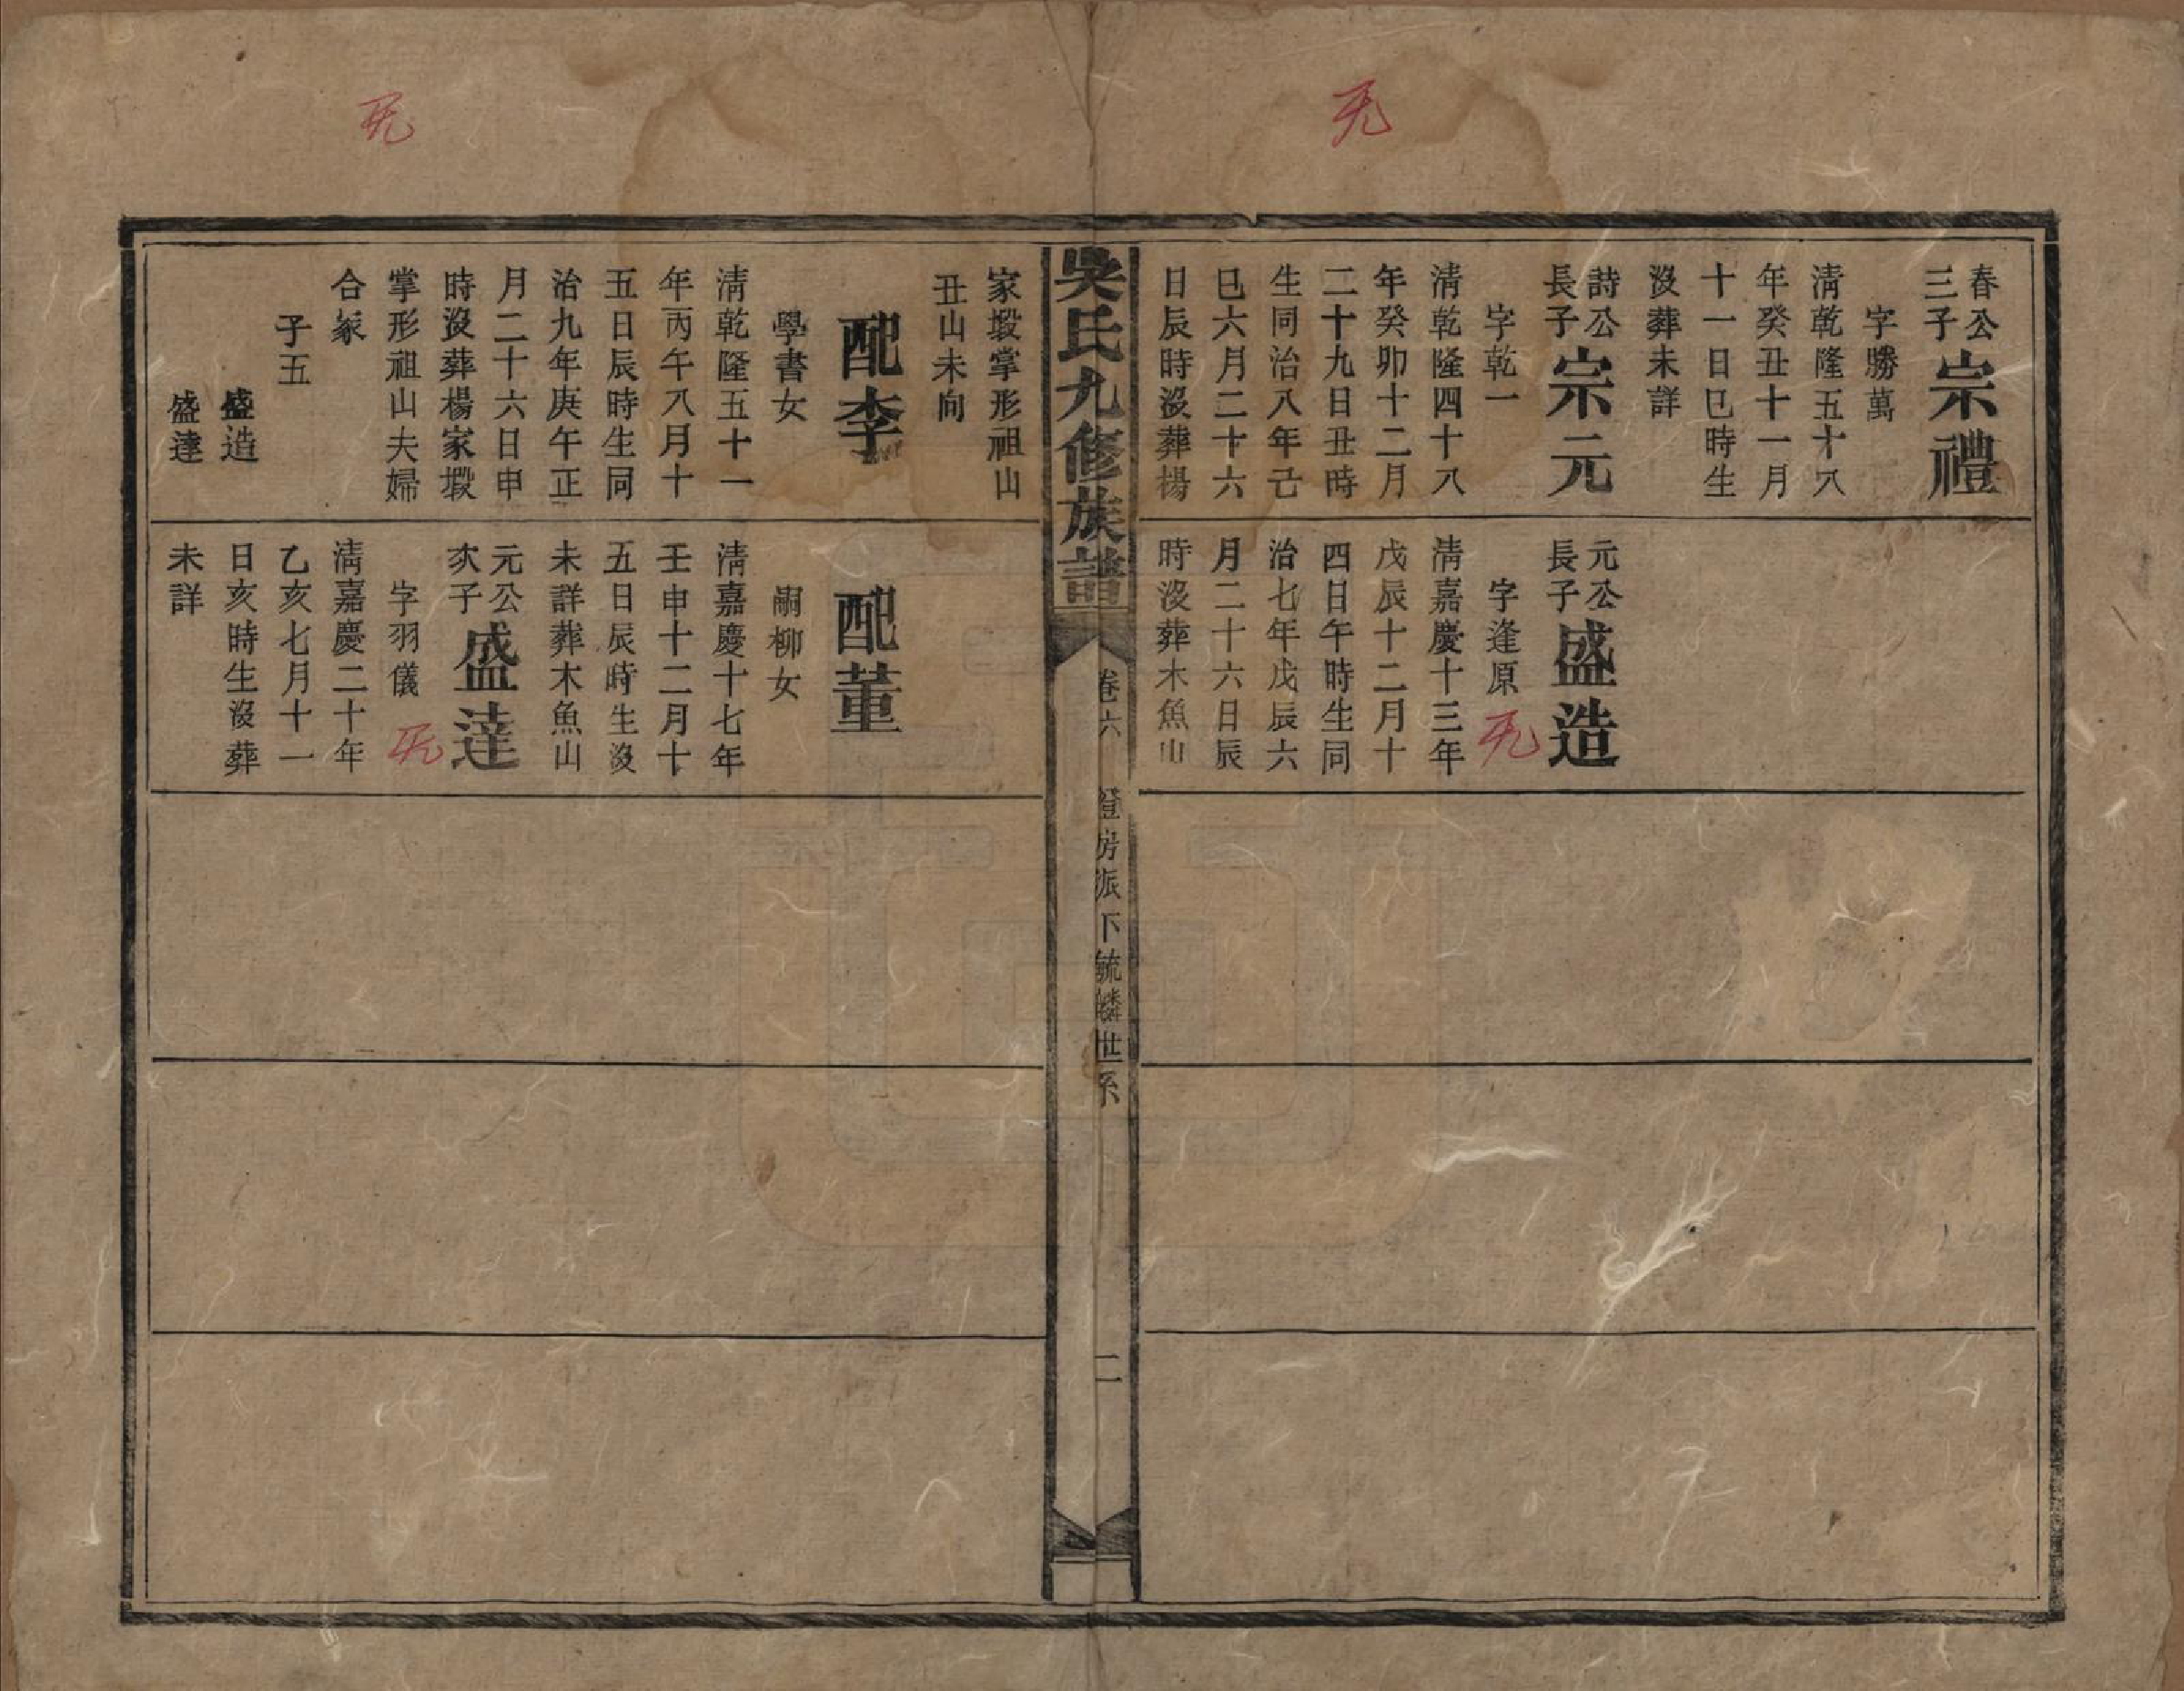 旡
春公
三子
宗禮
字勝萬
清乾隆五十八
年癸丑十一月
十一日巳時生
沒葬未詳
詩公
長子
宗元
字乾一
清乾隆四十八
年癸卯十二月
二十九日丑時
生同治八年己
巳六月二十六
日辰時沒葬楊
元公
長子
盛造
字逢原
旡
清嘉慶十三年
戊辰十二月十
四日午時生同
治七年戊辰六
月二十六日辰
時沒葬木魚山
吳氏九修族譜
卷六
證房派下毓麟世系
二
旡
家塅掌形祖山
丑山未向
配李
學書女
清乾隆五十一
年丙午八月十
五日辰時生同
治九年庚午正
月二十六日申
時沒葬楊家塅
掌形祖山夫婦
合冢
子五
盛造
盛達
配董
嗣柳女
清嘉慶十七年
壬申十二月十
五日辰時生沒
未詳葬木魚山
元公
次子
盛達
字羽儀
旡
清嘉慶二十年
乙亥七月十一
日亥時生沒葬
未詳